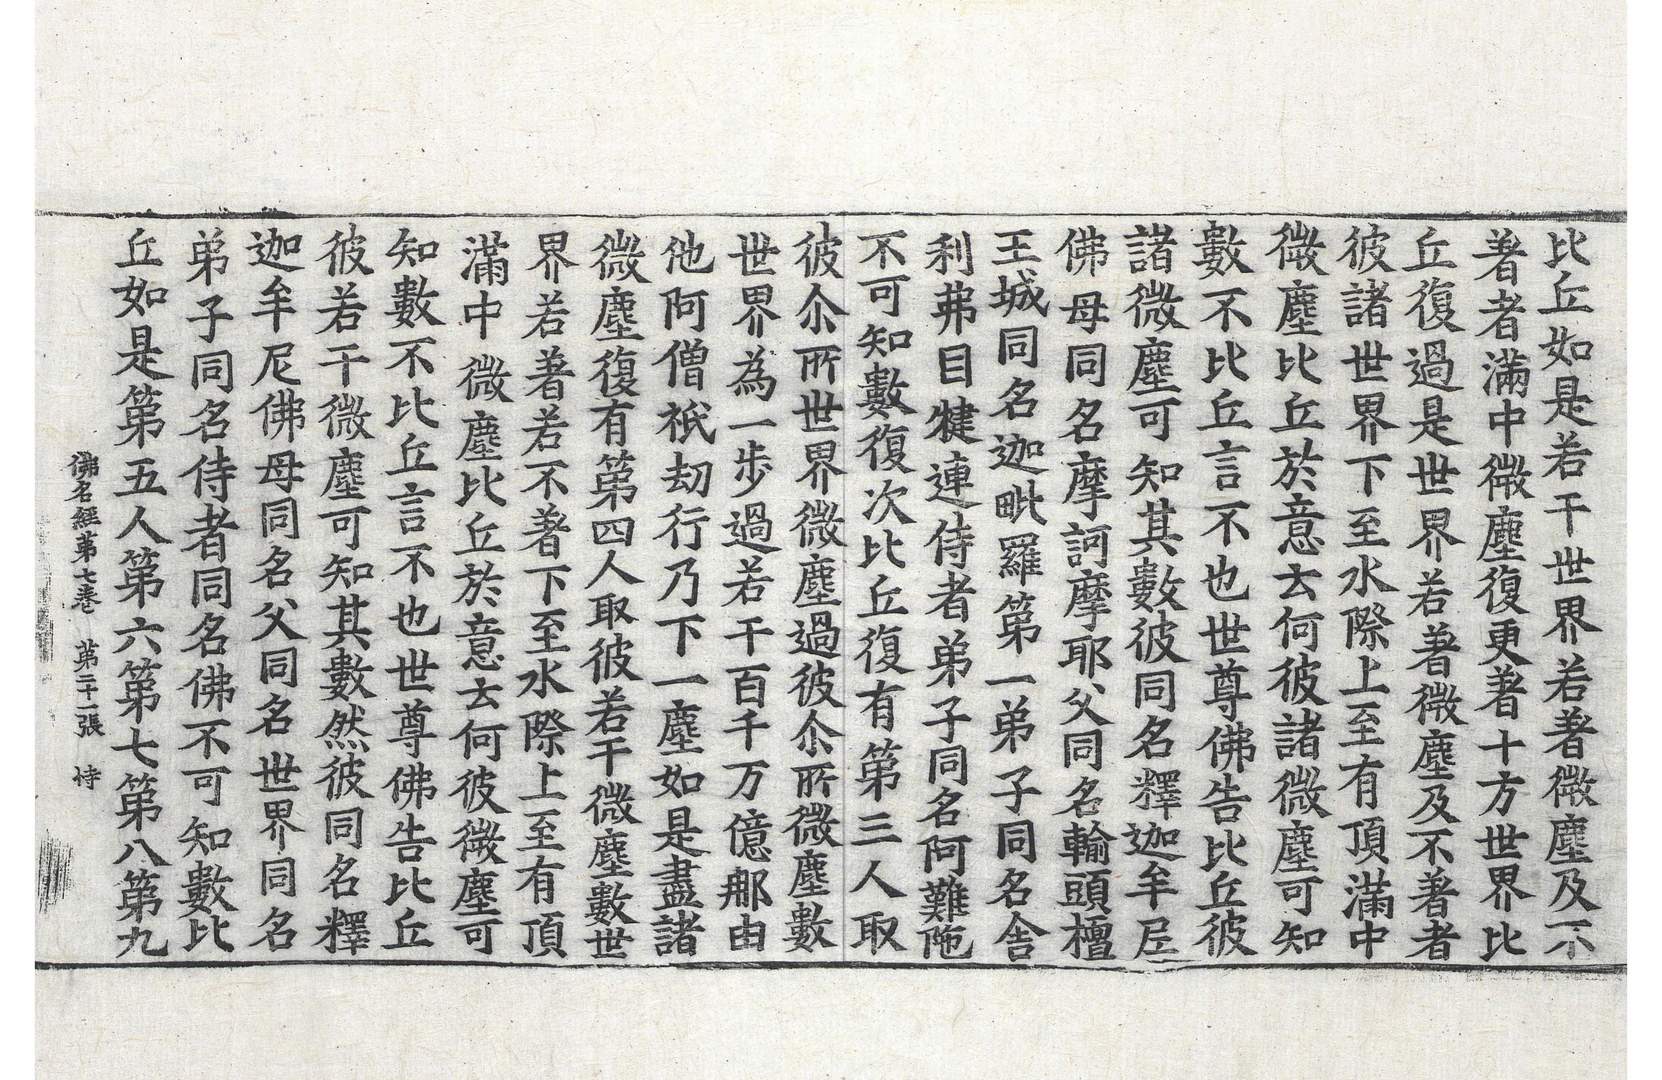 比丘如是若干世界若著微塵及不
著者滿中微塵復更著十方世界比
丘復過是世界若著微塵及不著者
彼諸世界下至水際上至有頂滿中
微塵比丘於意云何彼諸微塵可知
數不比丘言不也世尊佛告比丘彼
諸微塵可知其數彼同名釋迦牟尼
佛母同名摩訶摩耶父同名輸頭檀
王城同名迦毗羅第一弟子同名舍
利弗目犍連侍者弟子同名阿難陁
不可知數復次比丘復有第三人取
彼尒所世界微塵過彼尒所微塵數
世界為一步過若干百千万億那由
他阿僧祇劫行乃下一塵如是盡諸
微塵復有第四人取彼若干微塵數世
界若著若不著下至水際上至有頂
滿中微塵比丘於意云何彼微塵可
知數不比丘言不也世尊佛告比丘
彼若干微塵可知其數然彼同名釋
迦牟尼佛母同名父同名世界同名
弟子同名侍者同名佛不可知數比
丘如是第五人第六第七第八第九
佛名經第七卷 第二十一張 恃